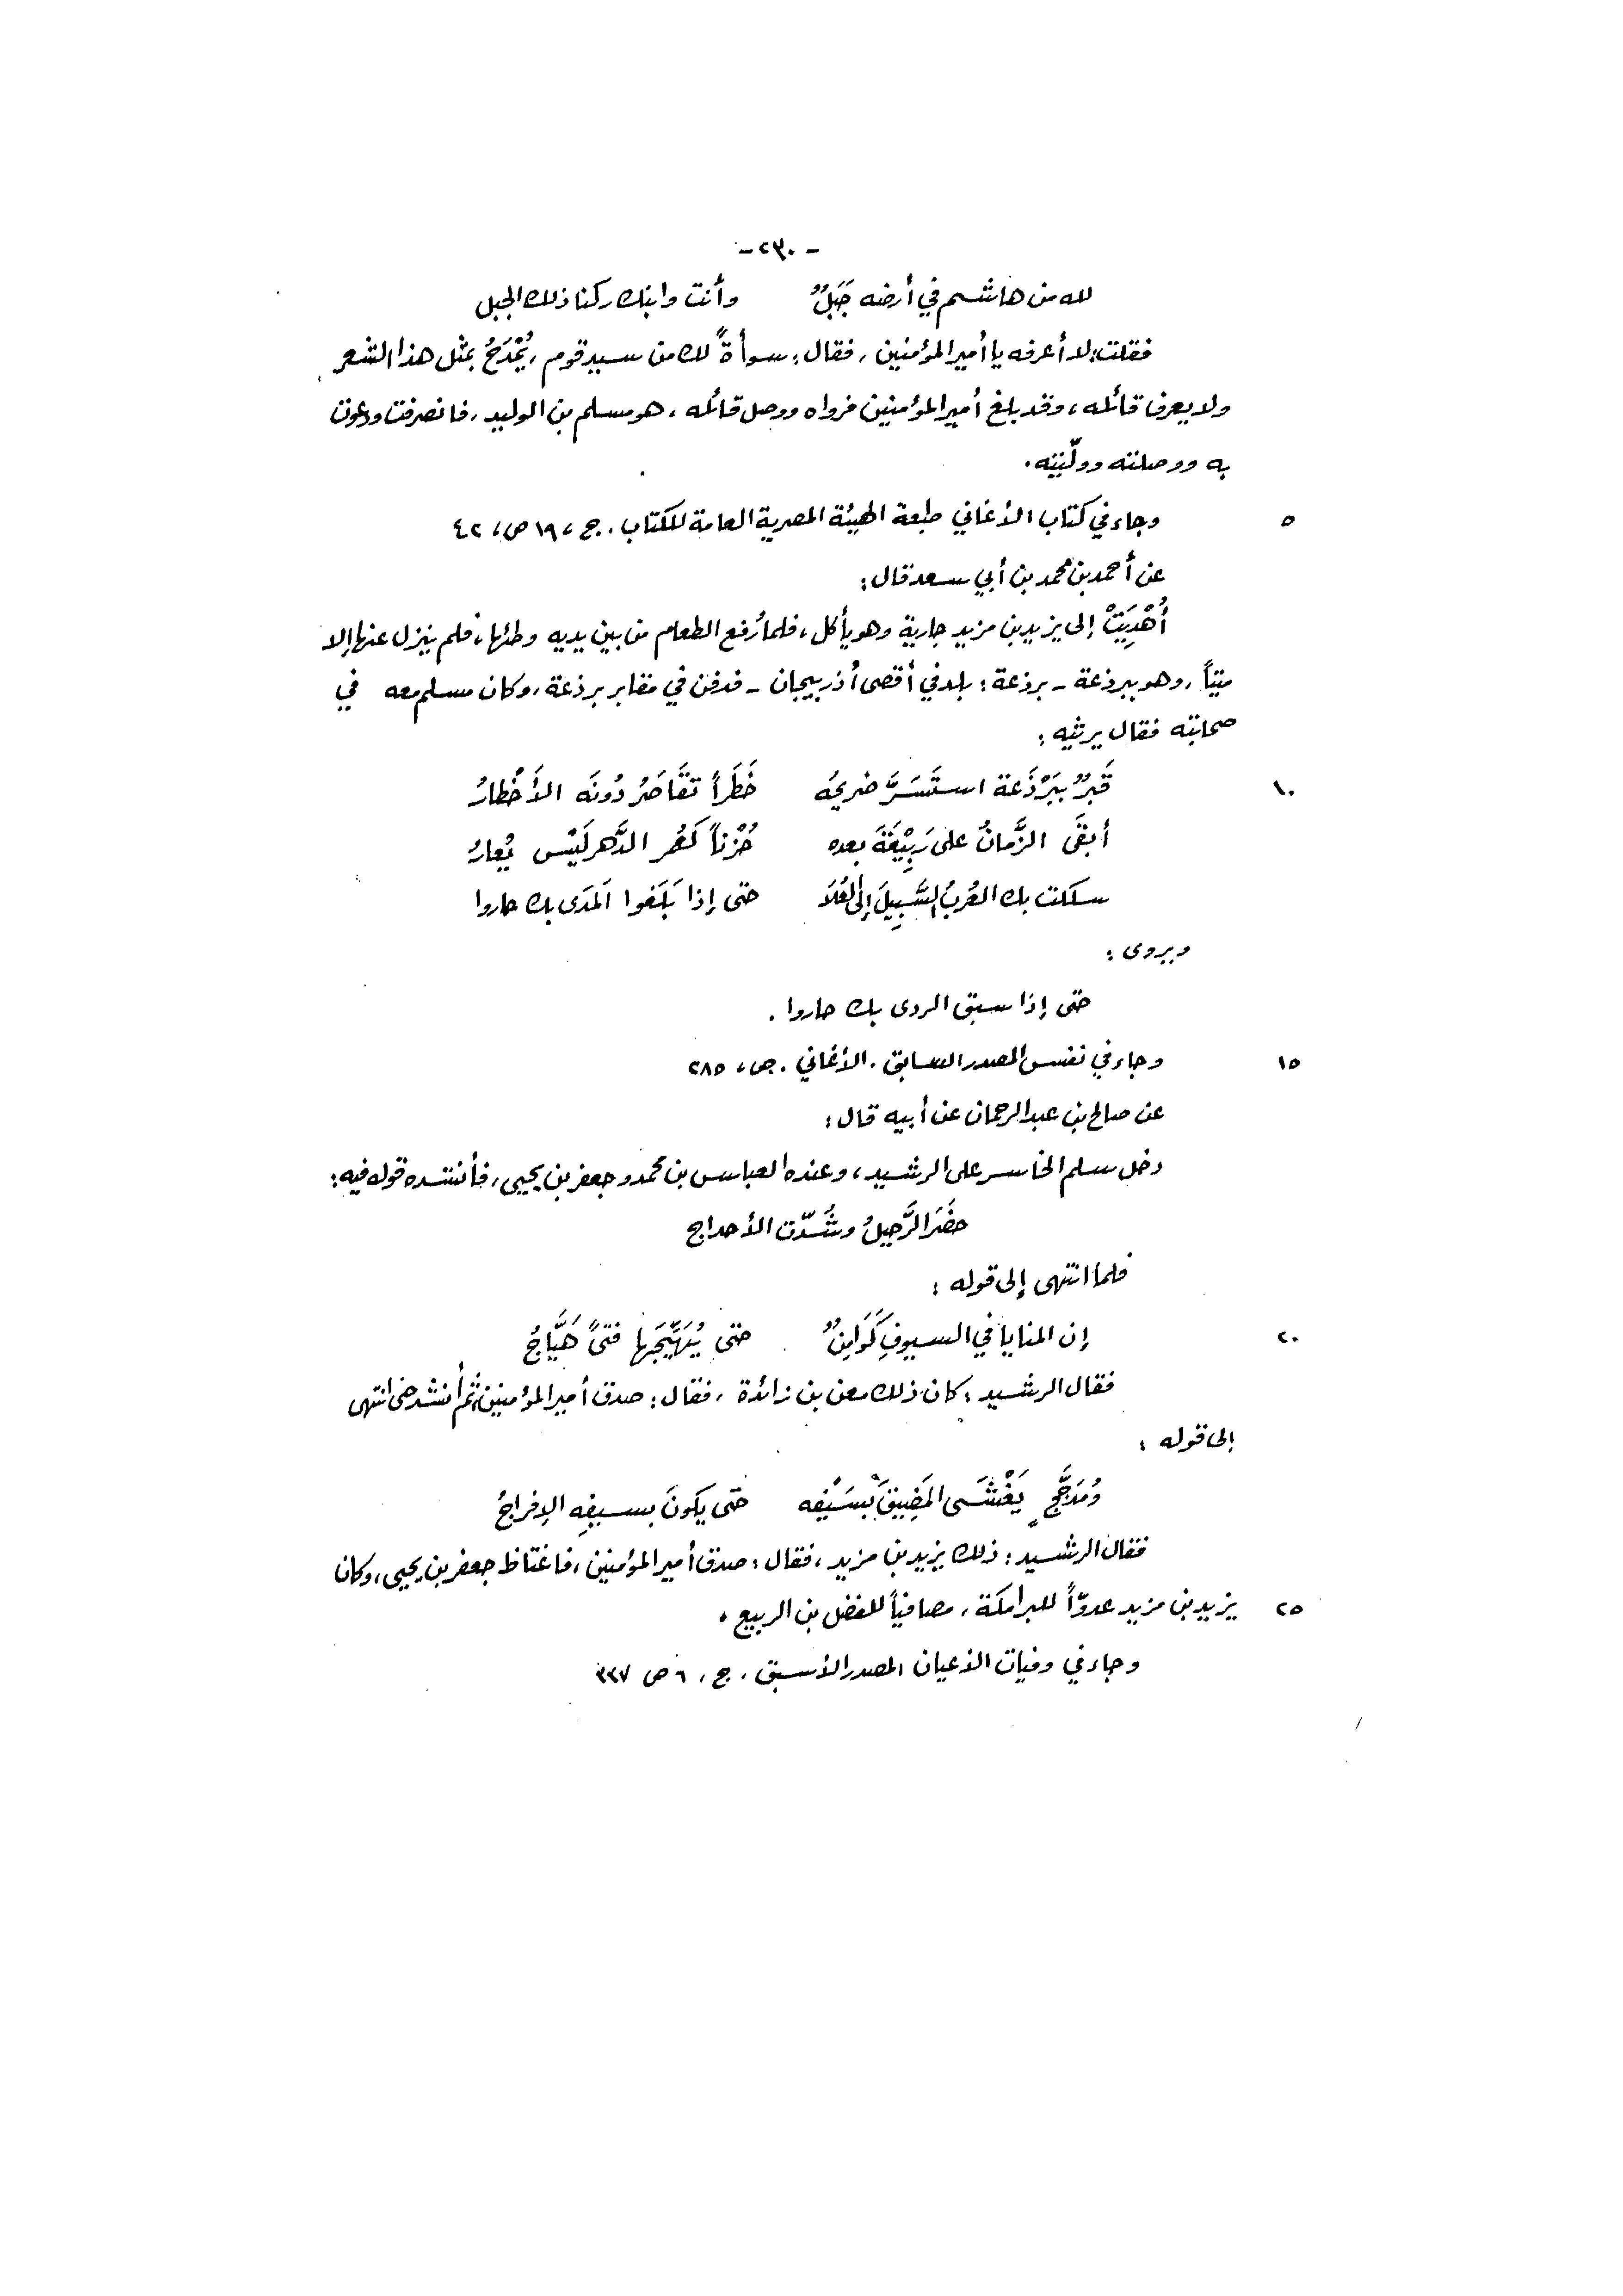 - ٢٣٠ -
لله من هاشم في أرضه جَبَلٌ وأنت وابنك ركنا ذلك الجبل
فقلت: لا أعرفه يا أمير المؤمنين، فقال: سوأةً لك من سيد قوم، يُمْدَحُ بمثل هذا الشعر
ولا يعرف قائله، وقد بلغ أمير المؤمنين فرواه ووصل قائله، هو مسلم بن الوليد، فانصرفت ودعوت
به ووصلته وولّيته.
٥ وجاء في كتاب الأغاني طبعة الهيئة المصرية العامة للكتاب. ج، ١٩ ص، ٤٢
عن أحمد بن محمد بن أبي سعد قال:
أُهْدِيَتْ إلى يزيد بن مزيد جارية وهو يأكل، فلما رُفع الطعام من بين يديه وطئها، فلم ينزل عنها إلا
ميتاً، وهو ببرذعة - برذعة: بلد في أقصى أذربيجان - فدفن في مقابر برذعة، وكان مسلم معه في
صحابته فقال يرثيه:
١٠ قَبرٌ بِبَرْذَعة استَسَرَّ ضريحُه خَطَراً تقَاصَرُ دُونَه الأَخْطارُ
أبقَى الزَّمانُ على رَبِيْعَةَ بعده حُزْناً كَعُمر الدَّهر لَيْس يُعارُ
سلكت بك العُربُ السَّبِيلَ إلى العُلاَ حتى إذا بَلَغوا المَدَى بك حاروا
ويروى:
حتى إذا سبق الردى بك حاروا.
١٥ وجاء في نفس المصدر السابق. الأغاني. ص، ٢٨٥
عن صالح بن عبد الرحمان عن أبيه قال:
دخل سلم الخاسر على الرشيد، وعنده العباس بن محمد وجعفر بن يحيى، فأنشده قوله فيه:
حضَرَ الرَّحِيلُ وشُدّت الأحداج
فلما انتهى إلى قوله:
٢٠ إن المنايا في السيوفِ كَوَامِنٌ حتى يُهَيِّجَها فتىً هَيَّاجُ
فقال الرشيد: كان ذلك معن بن زائدة، فقال: صدق أمير المؤمنين، ثم أنشد حتى انتهى
إلى قوله:
وَمُدَجَّجٍ يَغْشَى المَضِيقَ بسَيْفِه حتى يكونَ بسيفِه الإفراجُ
فقال الرشيد: ذلك يزيد بن مزيد، فقال: صدق أمير المؤمنين، فاغتاظ جعفر بن يحيى، وكان
٢٥ يزيد بن مزيد عدوّاً للبرامكة، مصافياً للفضل بن الربيع.
وجاء في وفيات الأعيان المصدر الأسبق، ج، ٦ ص ٣٣٧